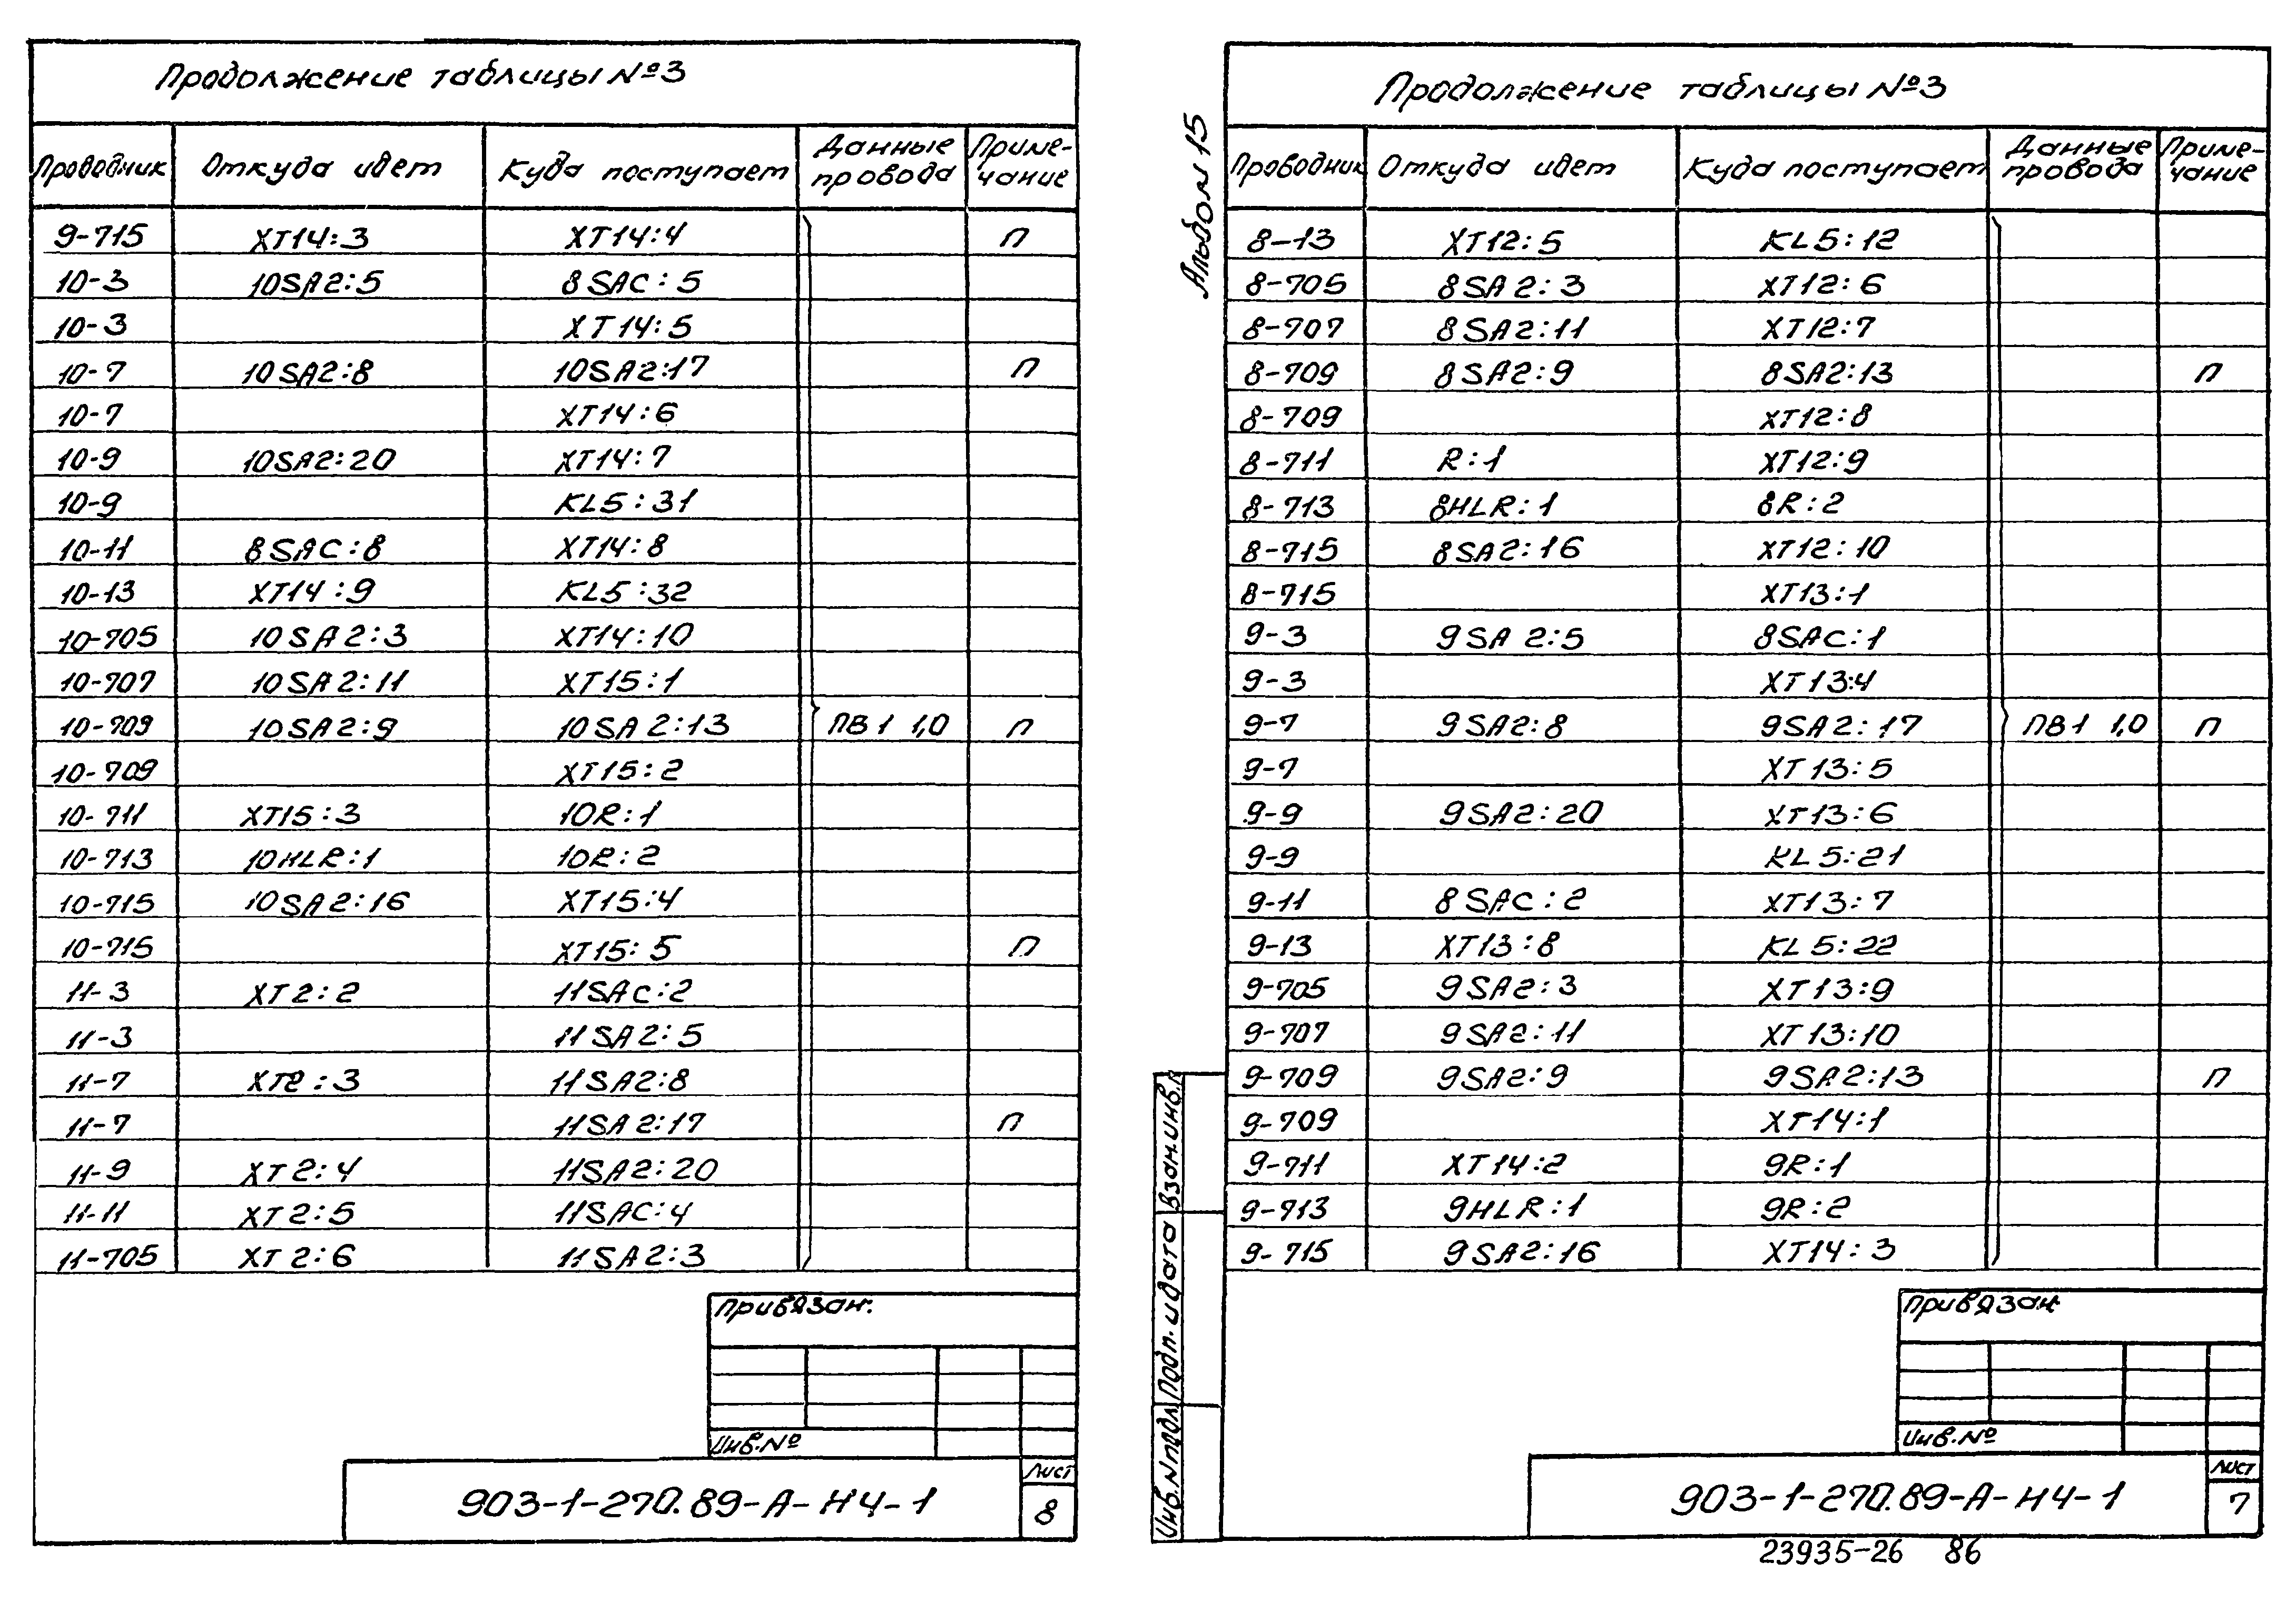 Продолжение таблицы №3
Проводник Откуда идет Куда поступает Данные провода Приме-чание
9-715 XT14:3 XT14:4 П
10-3 10SA2:5 8SAC:5
10-3 XT14:5
10-7 10SA2:8 10SA2:17 П
10-7 XT14:6
10-9 10SA2:20 XT14:7
10-9 KL5:31
10-11 8SAC:8 XT14:8
10-13 XT14:9 KL5:32
10-705 10SA2:3 XT14:10
10-707 10SA2:11 XT15:1
10-709 10SA2:9 10SA2:13 ПВ1 1,0 П
10-709 XT15:2
10-711 XT15:3 10R:1
10-713 10HLR:1 10R:2
10-715 10SA2:16 XT15:4
10-715 XT15:5 П
11-3 XT2:2 11SAC:2
11-3 11SA2:5
11-7 XT2:3 11SA2:8
11-7 11SA2:17 П
11-9 XT2:4 11SA2:20
11-11 XT2:5 11SAC:4
11-705 XT2:6 11SA2:3
Привязан:
Инв.№
903-1-270.89-А-НЧ-1
Лист
8
Альбом 15
Продолжение таблицы №3
Проводник Откуда идет Куда поступает Данные провода Приме-чание
8-13 XT12:5 KL5:12
8-705 8SA2:3 XT12:6
8-707 8SA2:11 XT12:7
8-709 8SA2:9 8SA2:13 П
8-709 XT12:8
8-711 R:1 XT12:9
8-713 8HLR:1 8R:2
8-715 8SA2:16 XT12:10
8-715 XT13:1
9-3 9SA2:5 8SAC:1
9-3 XT13:4
9-7 9SA2:8 9SA2:17 ПВ1 1,0 П
9-7 XT13:5
9-9 9SA2:20 XT13:6
9-9 KL5:21
9-11 8SAC:2 XT13:7
9-13 XT13:8 KL5:22
9-705 9SA2:3 XT13:9
9-707 9SA2:11 XT13:10
9-709 9SA2:9 9SA2:13 П
9-709 XT14:1
9-711 XT14:2 9R:1
9-713 9HLR:1 9R:2
9-715 9SA2:16 XT14:3
Инв.N подл. Подп. и дата Взам.инв.N
Привязан
Инв.№
903-1-270.89-А-НЧ-1
Лист
7
23935-26 86